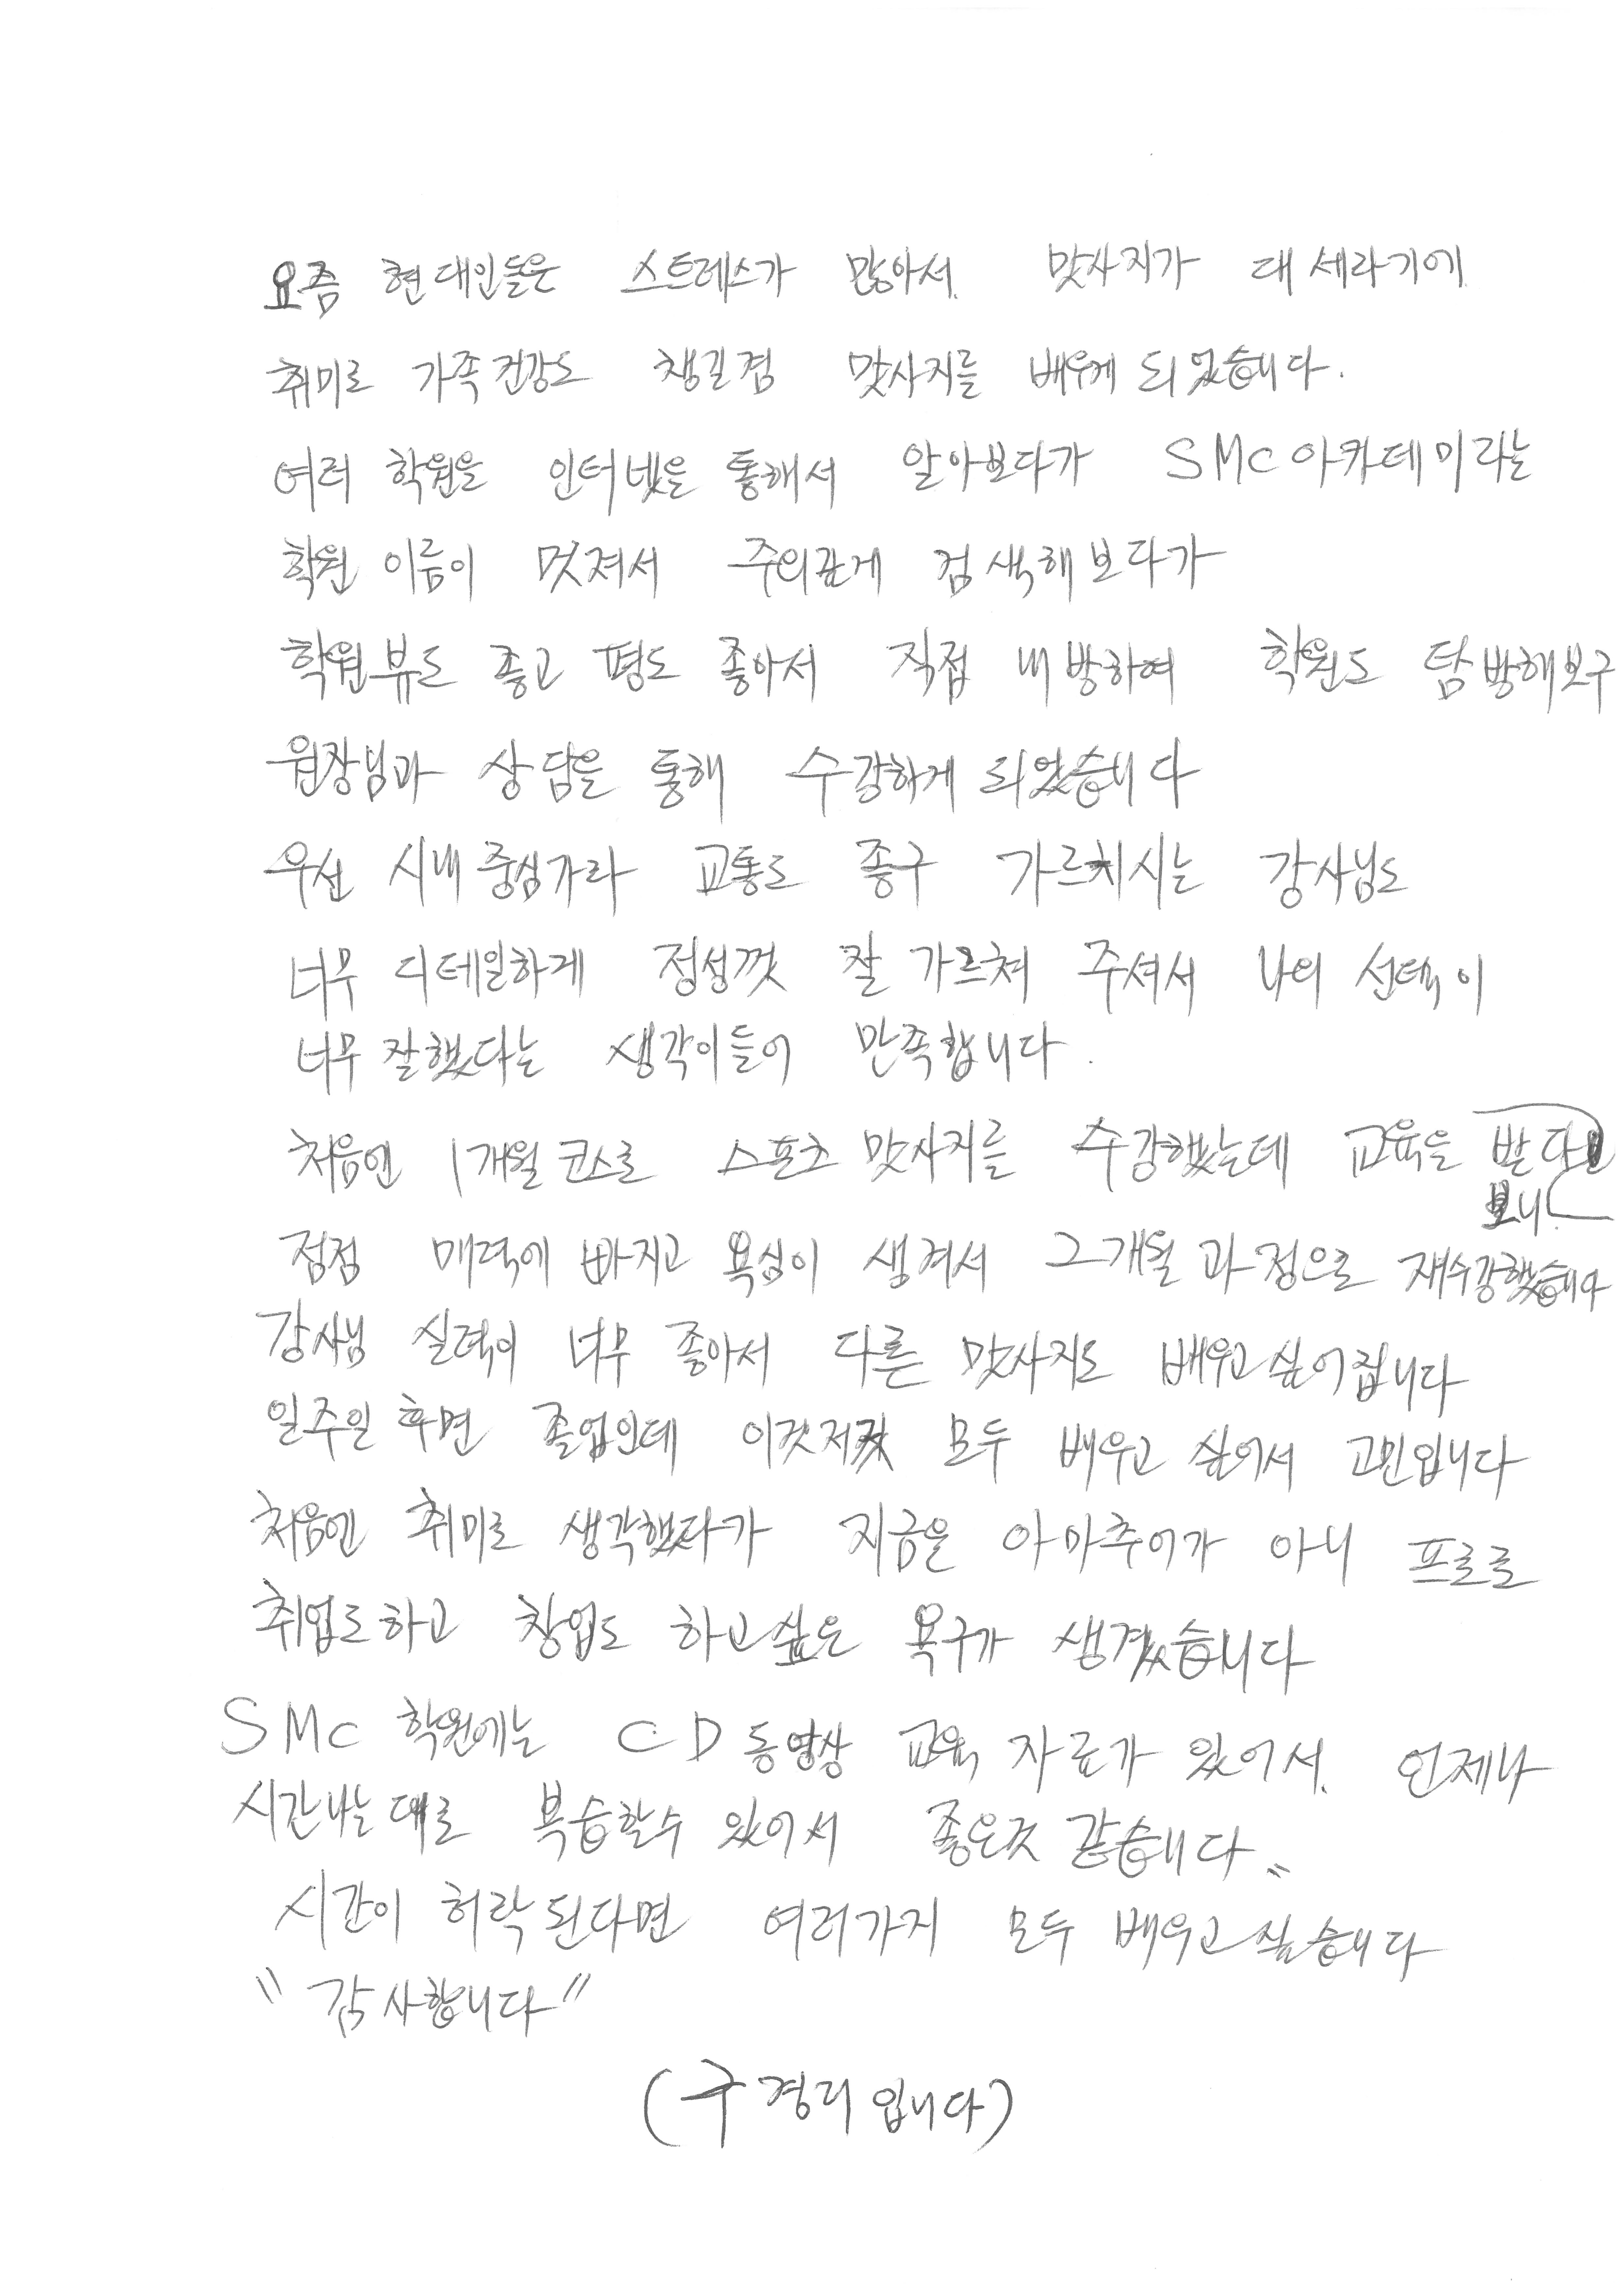 요즘 현대인들은 스트레스가 많아서. 맛사지가 대세라기에
취미로 가족건강도 챙길겸 맛사지를 배우게 되었습니다.
여러 학원을 인터넷을 통해서 알아보다가 SMC아카데미라는
학원 이름이 멋져서 주의깊게 검색해보다가
학원뷰도 좋고 평도 좋아서 직접 내방하여 학원도 탐방해보구
원장님과 상담을 통해 수강하게 되었습니다
우선 시내중심가라 교통도 좋구 가르치시는 강사님도
너무 디테일하게 정성껏 잘 가르쳐 주셔서 나의 선택이
너무 잘했다는 생각이들어 만족합니다.
처음엔 1개월코스로 스포츠맛사지를 수강했는데 교육을 받다
보니
점점 매력에 빠지고 욕심이 생겨서 개월과정으로 재수강했습니다
강사님 실력이 너무 좋아서 다른 맛사지도 배우고싶어집니다
일주일 후면 졸업인데 이것저것 모두 배우고 싶어서 고민입니다
처음엔 취미로 생각했다가 지금은 아마추어가 아니 프로로
취업도하고 창업도 하고싶은 욕구가 생겼습니다
SMC 학원에는 CD 동영상 교육 자료가 있어서. 언제나
시간나는대로 복습할수 있어서 좋은것 같습니다〃
시간이 허락된다면 여러가지 모두 배우고싶습니다
"감사합니다"
(구경리입니다)